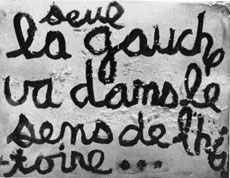 seule
la gauche
va dans le
sens de l'his
-toire...